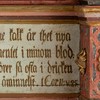 ne kalk är thet nya
mentet i minom blod,
hörer så ofta i dricken
åminnelse. I Cor. 11. v. 25.